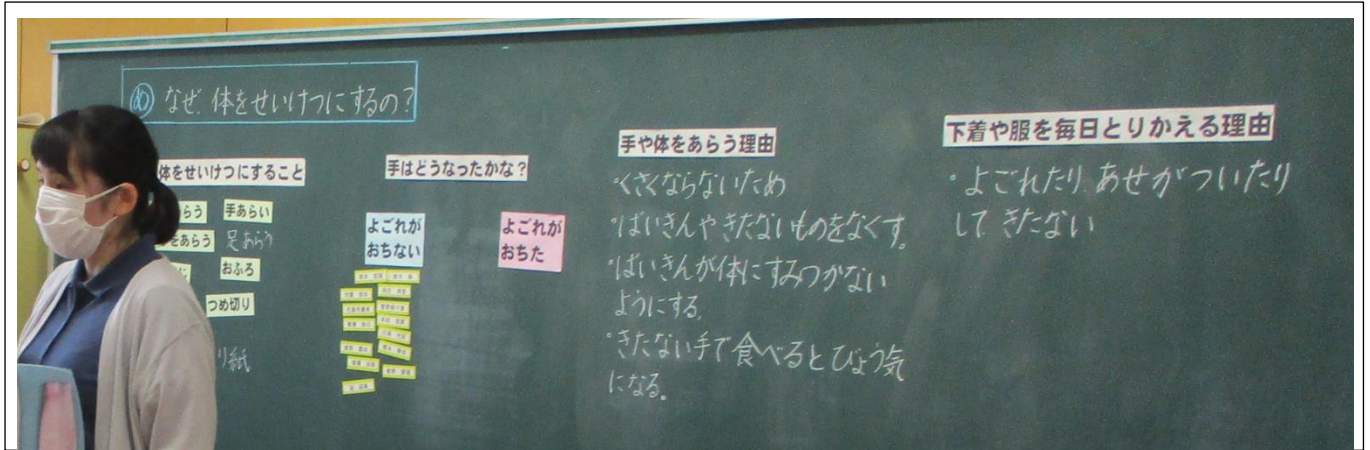 め なぜ、体をせいけつにするの?
体をせいけつにすること
らう 手あらい
をあらう 足あらう
おふろ
つめ切り
り紙
手はどうなったかな?
よごれが
おちない
よごれが
おちた
手や体をあらう理由
・くさくならないため
・ばいきんやきたないものをなくす。
・ばいきんが体にすみつかない
ようにする。
・きたない手で食べるとびょう気
になる。
下着や服を毎日とりかえる理由
・よごれたり、あせがついたり
して きたない